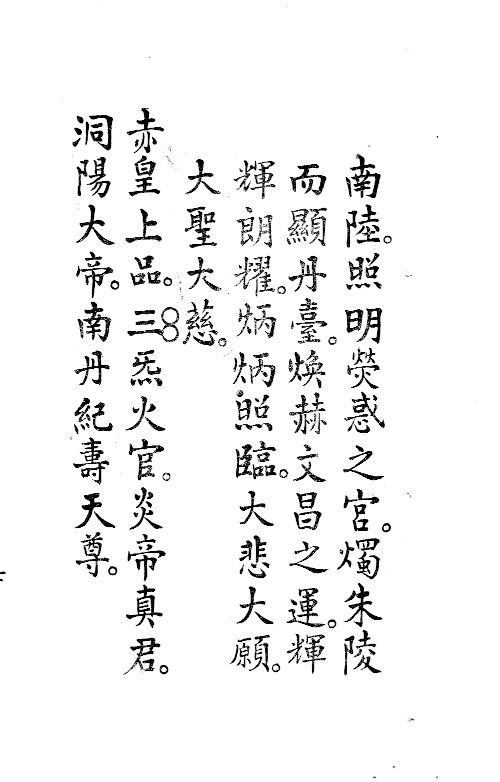 南陸。照明熒惑之宮。燭朱陵
而顯丹臺。煥赫文昌之運。輝
輝朗耀。炳炳照臨。大悲大願。
大聖大慈。
赤皇上品。三炁火官。炎帝真君。
洞陽大帝。南丹紀壽天尊。